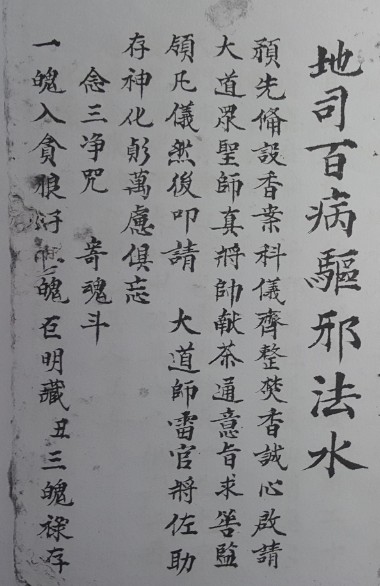 地司百病驅邪法水
預先俻設香案科儀齊整焚香誠心啟請
大道眾聖師真將帥献茶通意旨求善監
領凡儀然後叩請　大道師雷官將佐助
存神化
萬慮俱忘
念三净咒　寄魂斗
一魄入貪狼
魄巨明藏　丑三魄祿存